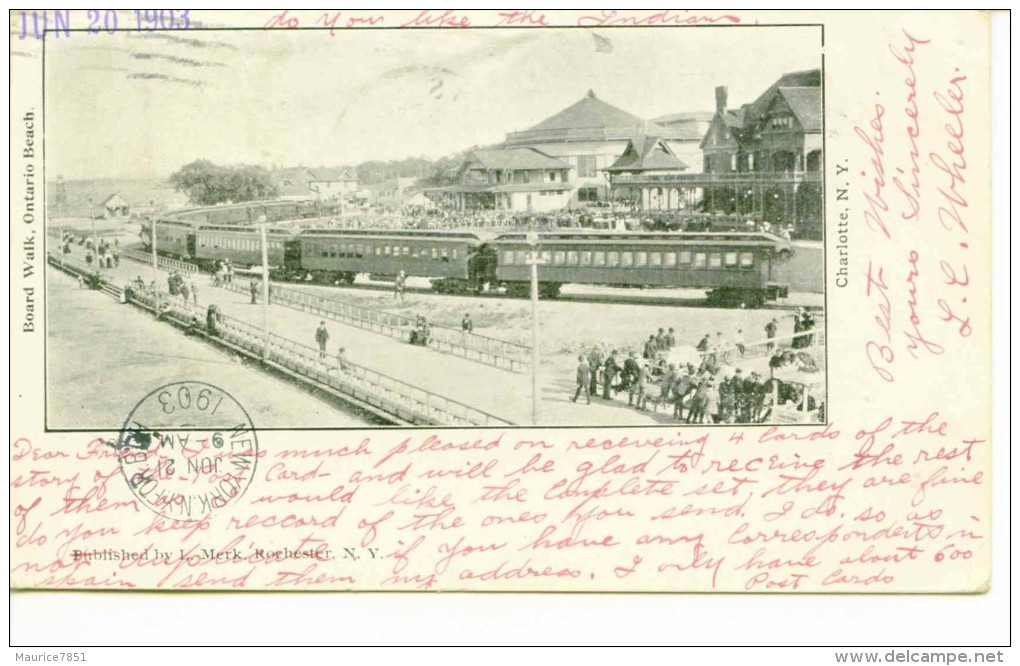 JUN 20 1903
do you like the Indians.
Board Walk, Ontario Beach.
Charlotte, N. Y.
Best Wishes.
yours Sincerely
L. L. Wheeler.
NEW YORK, N.Y.
JUN 21
9- AM
1903
Dear Friend much pleased on receiveing 4 Cards of the
story of Card- and will be glad to receive the rest
of them would like the Complete set, they are fine
do you keep reccord of the ones you send. I do. so as
not if you have any Correspondents in
Published by L. Merk, Rochester, N. Y.
Spain send them my address. I only have about 600
Post Cards
Maurice7851
www.delcampe.net